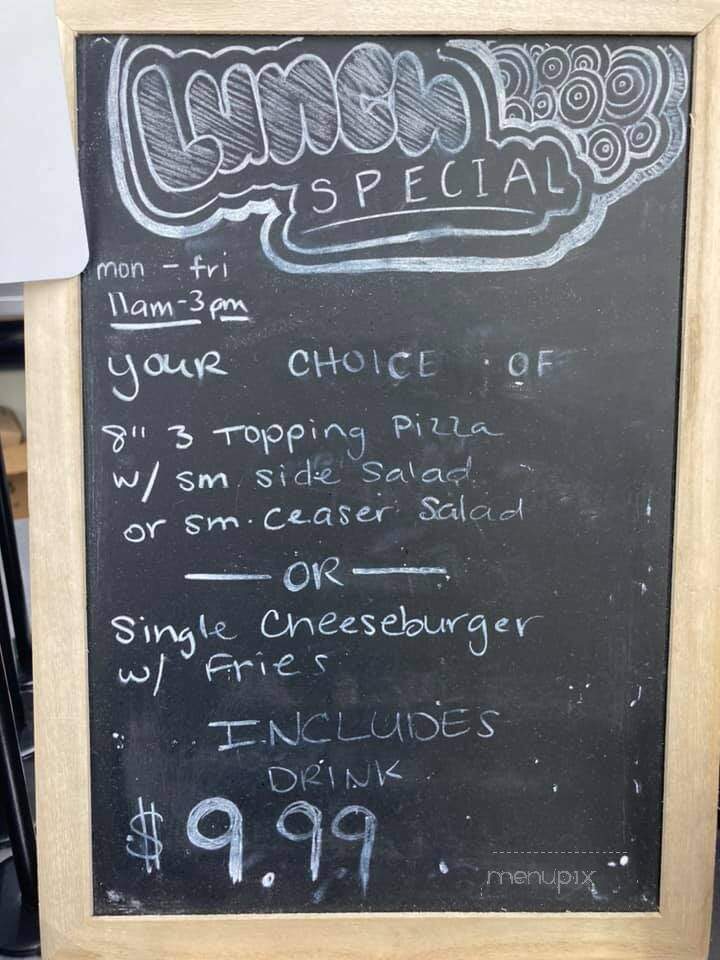 Lunch
SPECIAL
mon - fri
11am-3pm
your CHOICE OF
8" 3 Topping Pizza
w/ sm side Salad
or sm. Ceaser Salad
— OR —
Single Cheeseburger
w/ Fries
INCLUDES
DRINK
$9.99
menupix